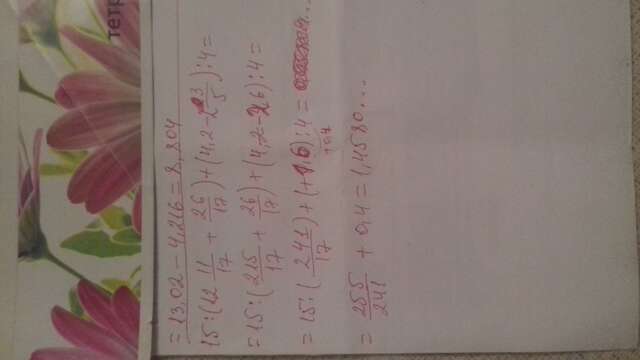 тетр
= 13,02 - 4,216 = 8,804
15:(12 11/17 + 26/17) + (4,2 - 2 3/5):4 =
= 15:(215/17 + 26/17) + (4,2 - 2,6):4 =
= 15:(241/17) + (+1,6):4 =
= 255/241 + 0,4 = 1,4580...